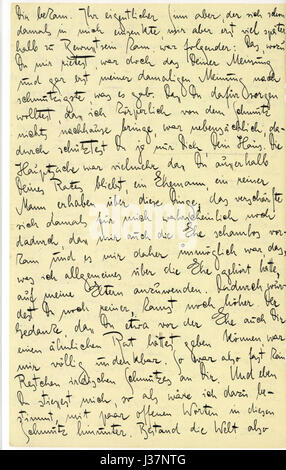 Du bekam. Ihr eigentlicher Sinn aber, der sich schon
damals in mich einsenkte, mir aber erst viel später
halb zu Bewusstsein kam, war folgender: Das, wozu
Du mir rietest war doch das Deiner Meinung
und gar erst meiner damaligen Meinung nach
Schmutzigste was es gab. Dass Du dafür sorgen
wolltest dass ich körperlich von dem Schmutz
nichts nachhause bringe war nebensächlich, da-
durch schütztest Du ja nur Dich, Dein Haus. Die
Hauptsache war vielmehr dass Du ausserhalb
Deines Rates bliebst, ein Ehemann, ein reiner
Mann erhaben über diese Dinge, das verschärfte
sich damals für mich wahrscheinlich noch
dadurch, dass mir auch die Ehe schamlos vor-
kam und es mir daher unmöglich war das,
was ich allgemeines über die Ehe gehört hatte,
auf meine Eltern anzuwenden. Dadurch wur-
dest Du noch reiner, kamst noch höher. Der
Gedanke, dass Du etwa vor der Ehe auch Dir
einen ähnlichen Rat hättest geben können war
mir völlig undenkbar. So war also fast kein
Restchen irdischen Schmutzes an Dir. Und eben
Du stiessest mich, so als wäre ich dazu be-
stimmt, mit paar offenen Worten in diesen
Schmutz hinunter. Bestand die Welt also
alamy
Image ID: J37NTG
www.alamy.com